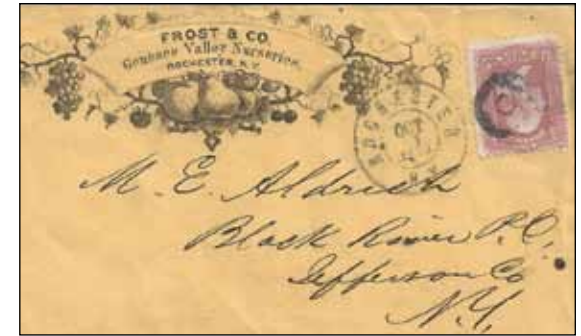 FROST & CO.
Genesee Valley Nurseries,
ROCHESTER, N.Y.
ROCHESTER
OCT
M. E. Aldrich
Black River P.O.
Jefferson Co
N.Y.